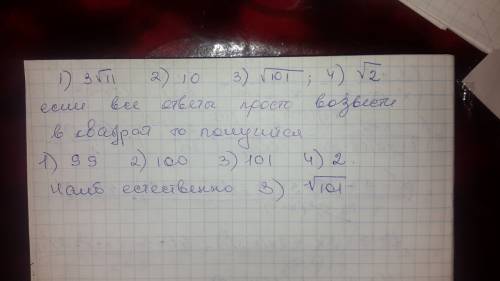 1) 3√11 2) 10 3) √101 ; 4) √2
если все ответа просто возвести
в квадрат то получийся
1) 99 2) 100 3) 101 4) 2
Наиб естественно 3) √101